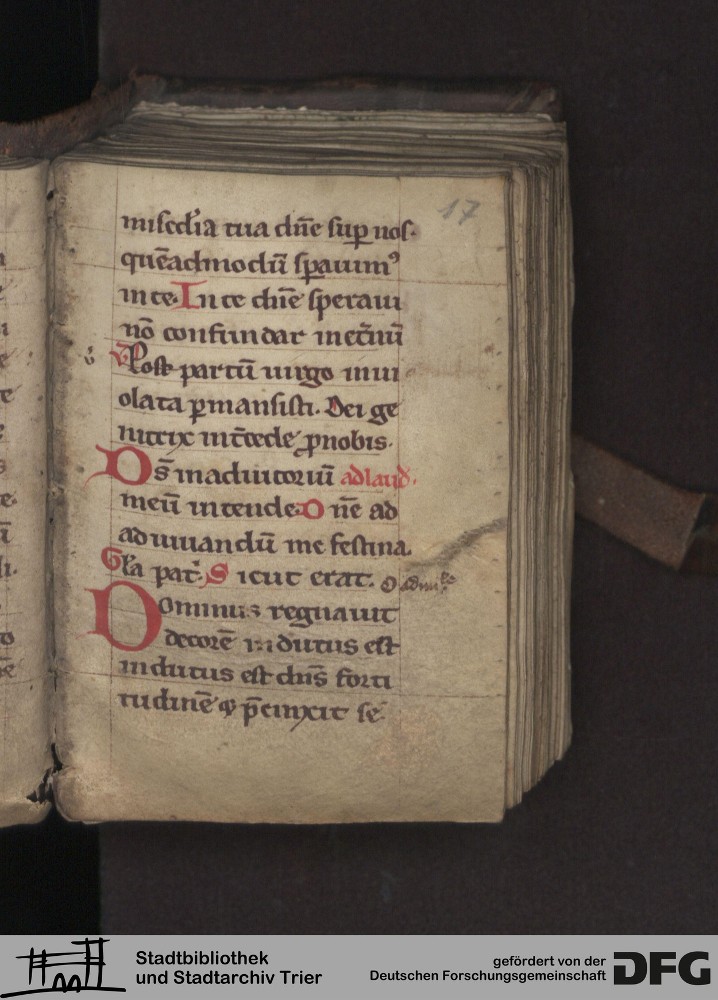 17
misc̄dia tua dn̄e sup nos.
quēadmodū spauim⁹
in te. In te dn̄e speraui
nō confundar inet̄nū
Post partū uirgo inui
olata pmansisti. Dei ge
nitrix int̄cede pnobis.
Ds̄ inadiutoriū adlaud.
meū intende. Dn̄e ad
adiuuandū me festina.
Gl̄a pat̄. Sicut erat.
Dominus regnauit
decorē indutus est
indutus est dn̄s forti
tudinē & p̄cinxit se.
Stadtbibliothek
und Stadtarchiv Trier
gefördert von der
Deutschen Forschungsgemeinschaft
DFG